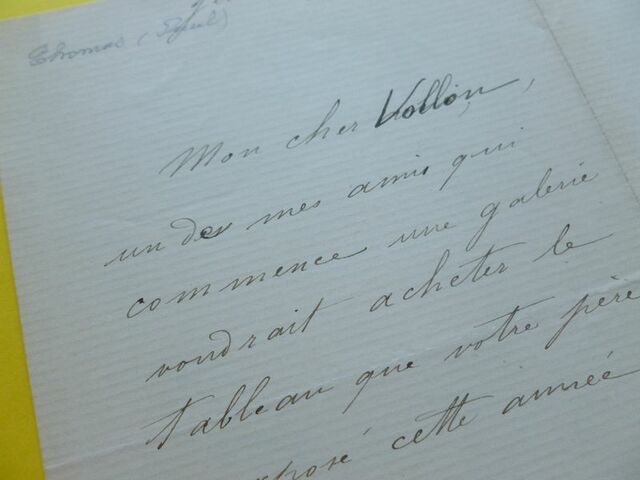 Thomas (Paul)
Mon cher Vollon,
un des mes amis qui
commence une galerie
voudrait acheter le
tableau que votre père
exposé cette année